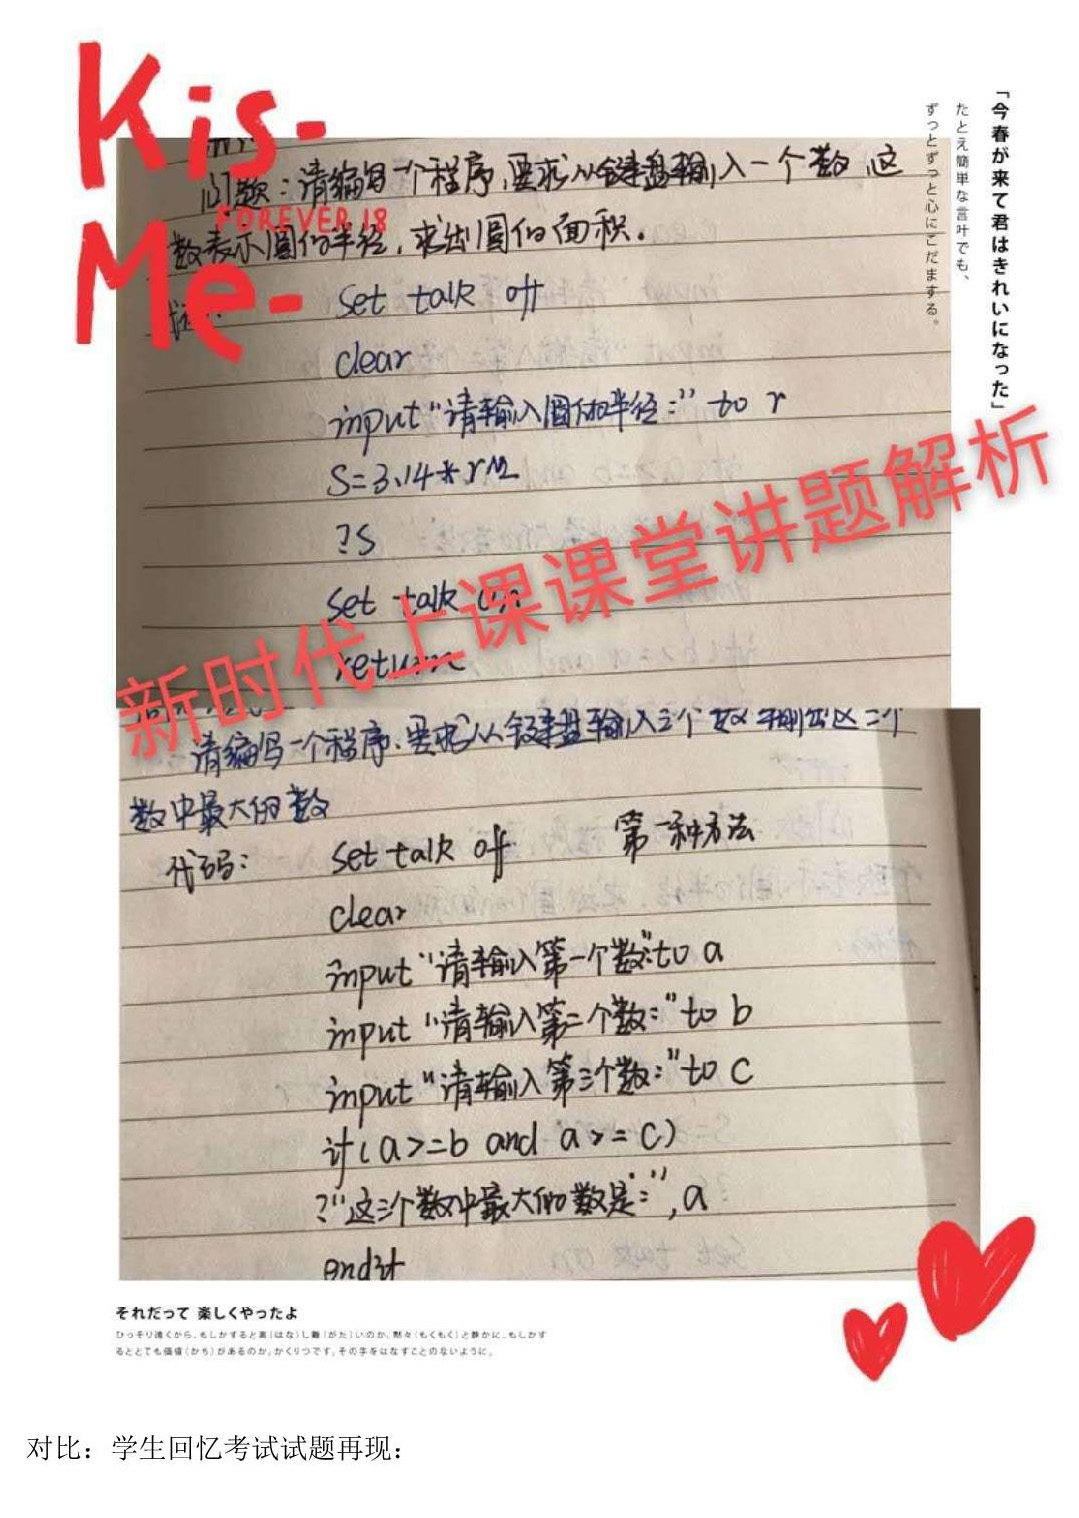 Kis-
Me-
FOREVER 18
「今春が来て君はきれいになった」
たとえ簡単な言叶でも、
ずっとずっと心にこだまする。
问题：请编写一个程序，要求从键盘输入一个数，这
数表示圆的半径，求出圆的面积。
set talk off
clear
input“请输入圆的半径：” to r
S=3.14*r^2
?S
set talk on
return
新时代上课课堂讲题解析
请编写一个程序，要求从键盘输入三个数 判断出这三个
数中最大的数
代码：
set talk off
第一种方法
clear
input“请输入第一个数：”to a
input“请输入第二个数：”to b
input“请输入第三个数：”to c
if(a>=b and a>=c)
?“这三个数中最大的数是：”,a
endif
それだって 楽しくやったよ
ひっそり遠くから、もしかすると离(はな)し難(がた)いのか。黙々(もくもく)と静かに、もしかす
るととても価値(かち)があるのか。かくりつです。その手をはなすことのないように。
对比：学生回忆考试试题再现：